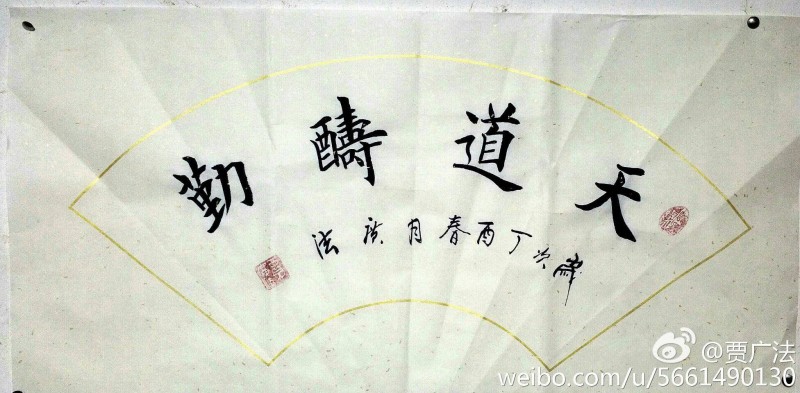 天道醻勤
歲次丁酉春月广法
@贾广法
weibo.com/u/5661490130